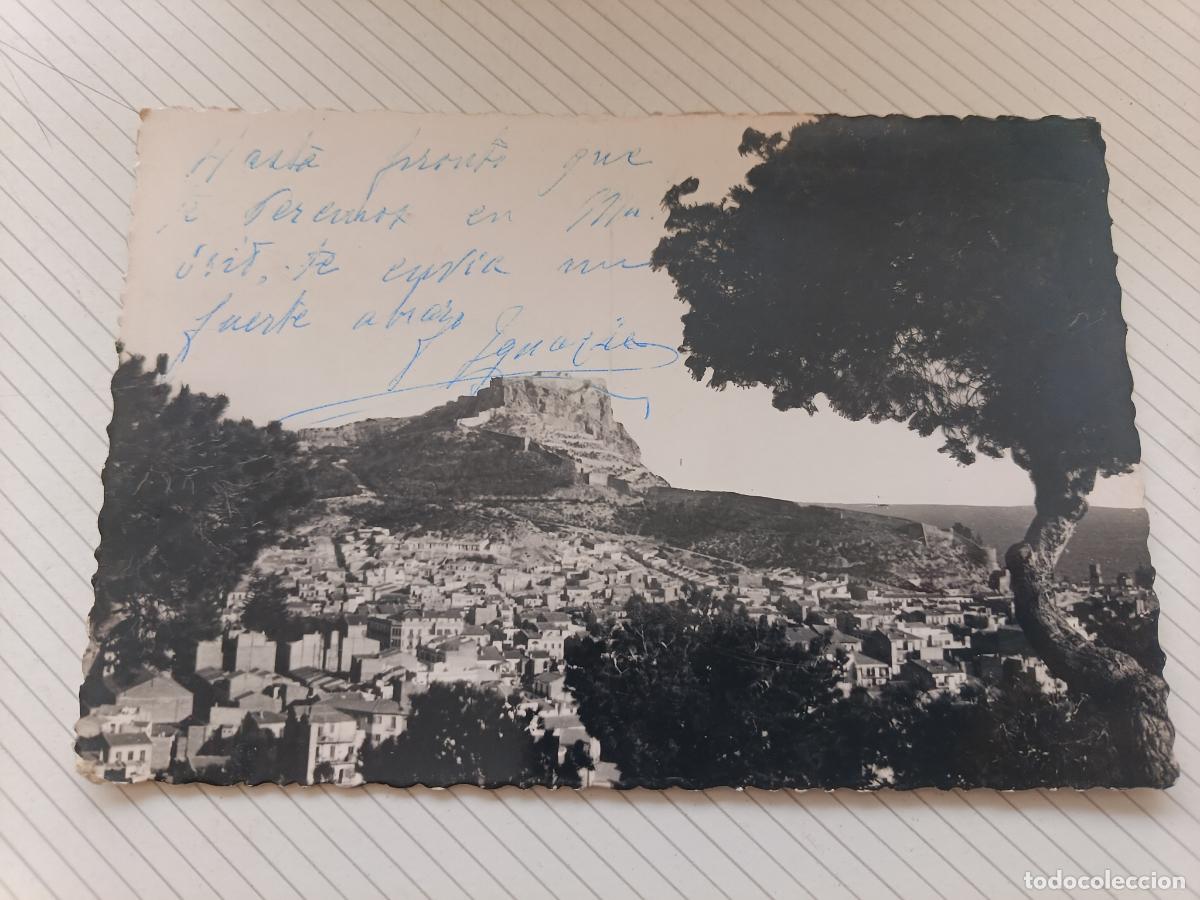 Hasta pronto que
te veremos en Ma-
drid, te envia un
fuerte abrazo
Ignacio
todocoleccion